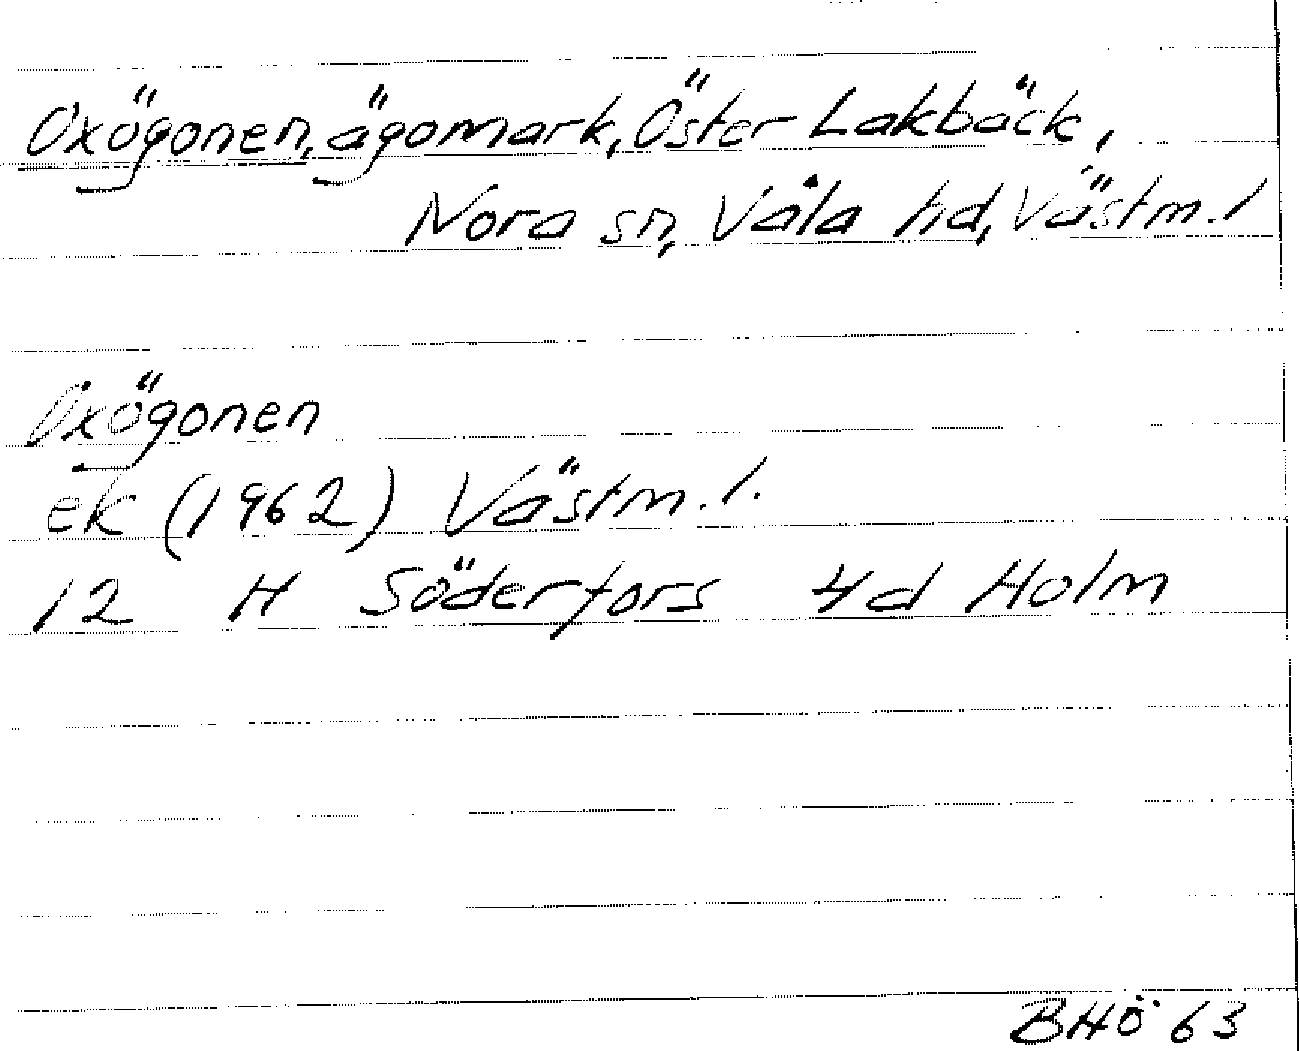 Oxögonen, ägomark, Öster Lakbäck,
Nora sn, Våla hd, Västm. l
Oxögonen
ek (1962) Västm. l.
12 H Söderfors 4d Holm
BHÖ 63